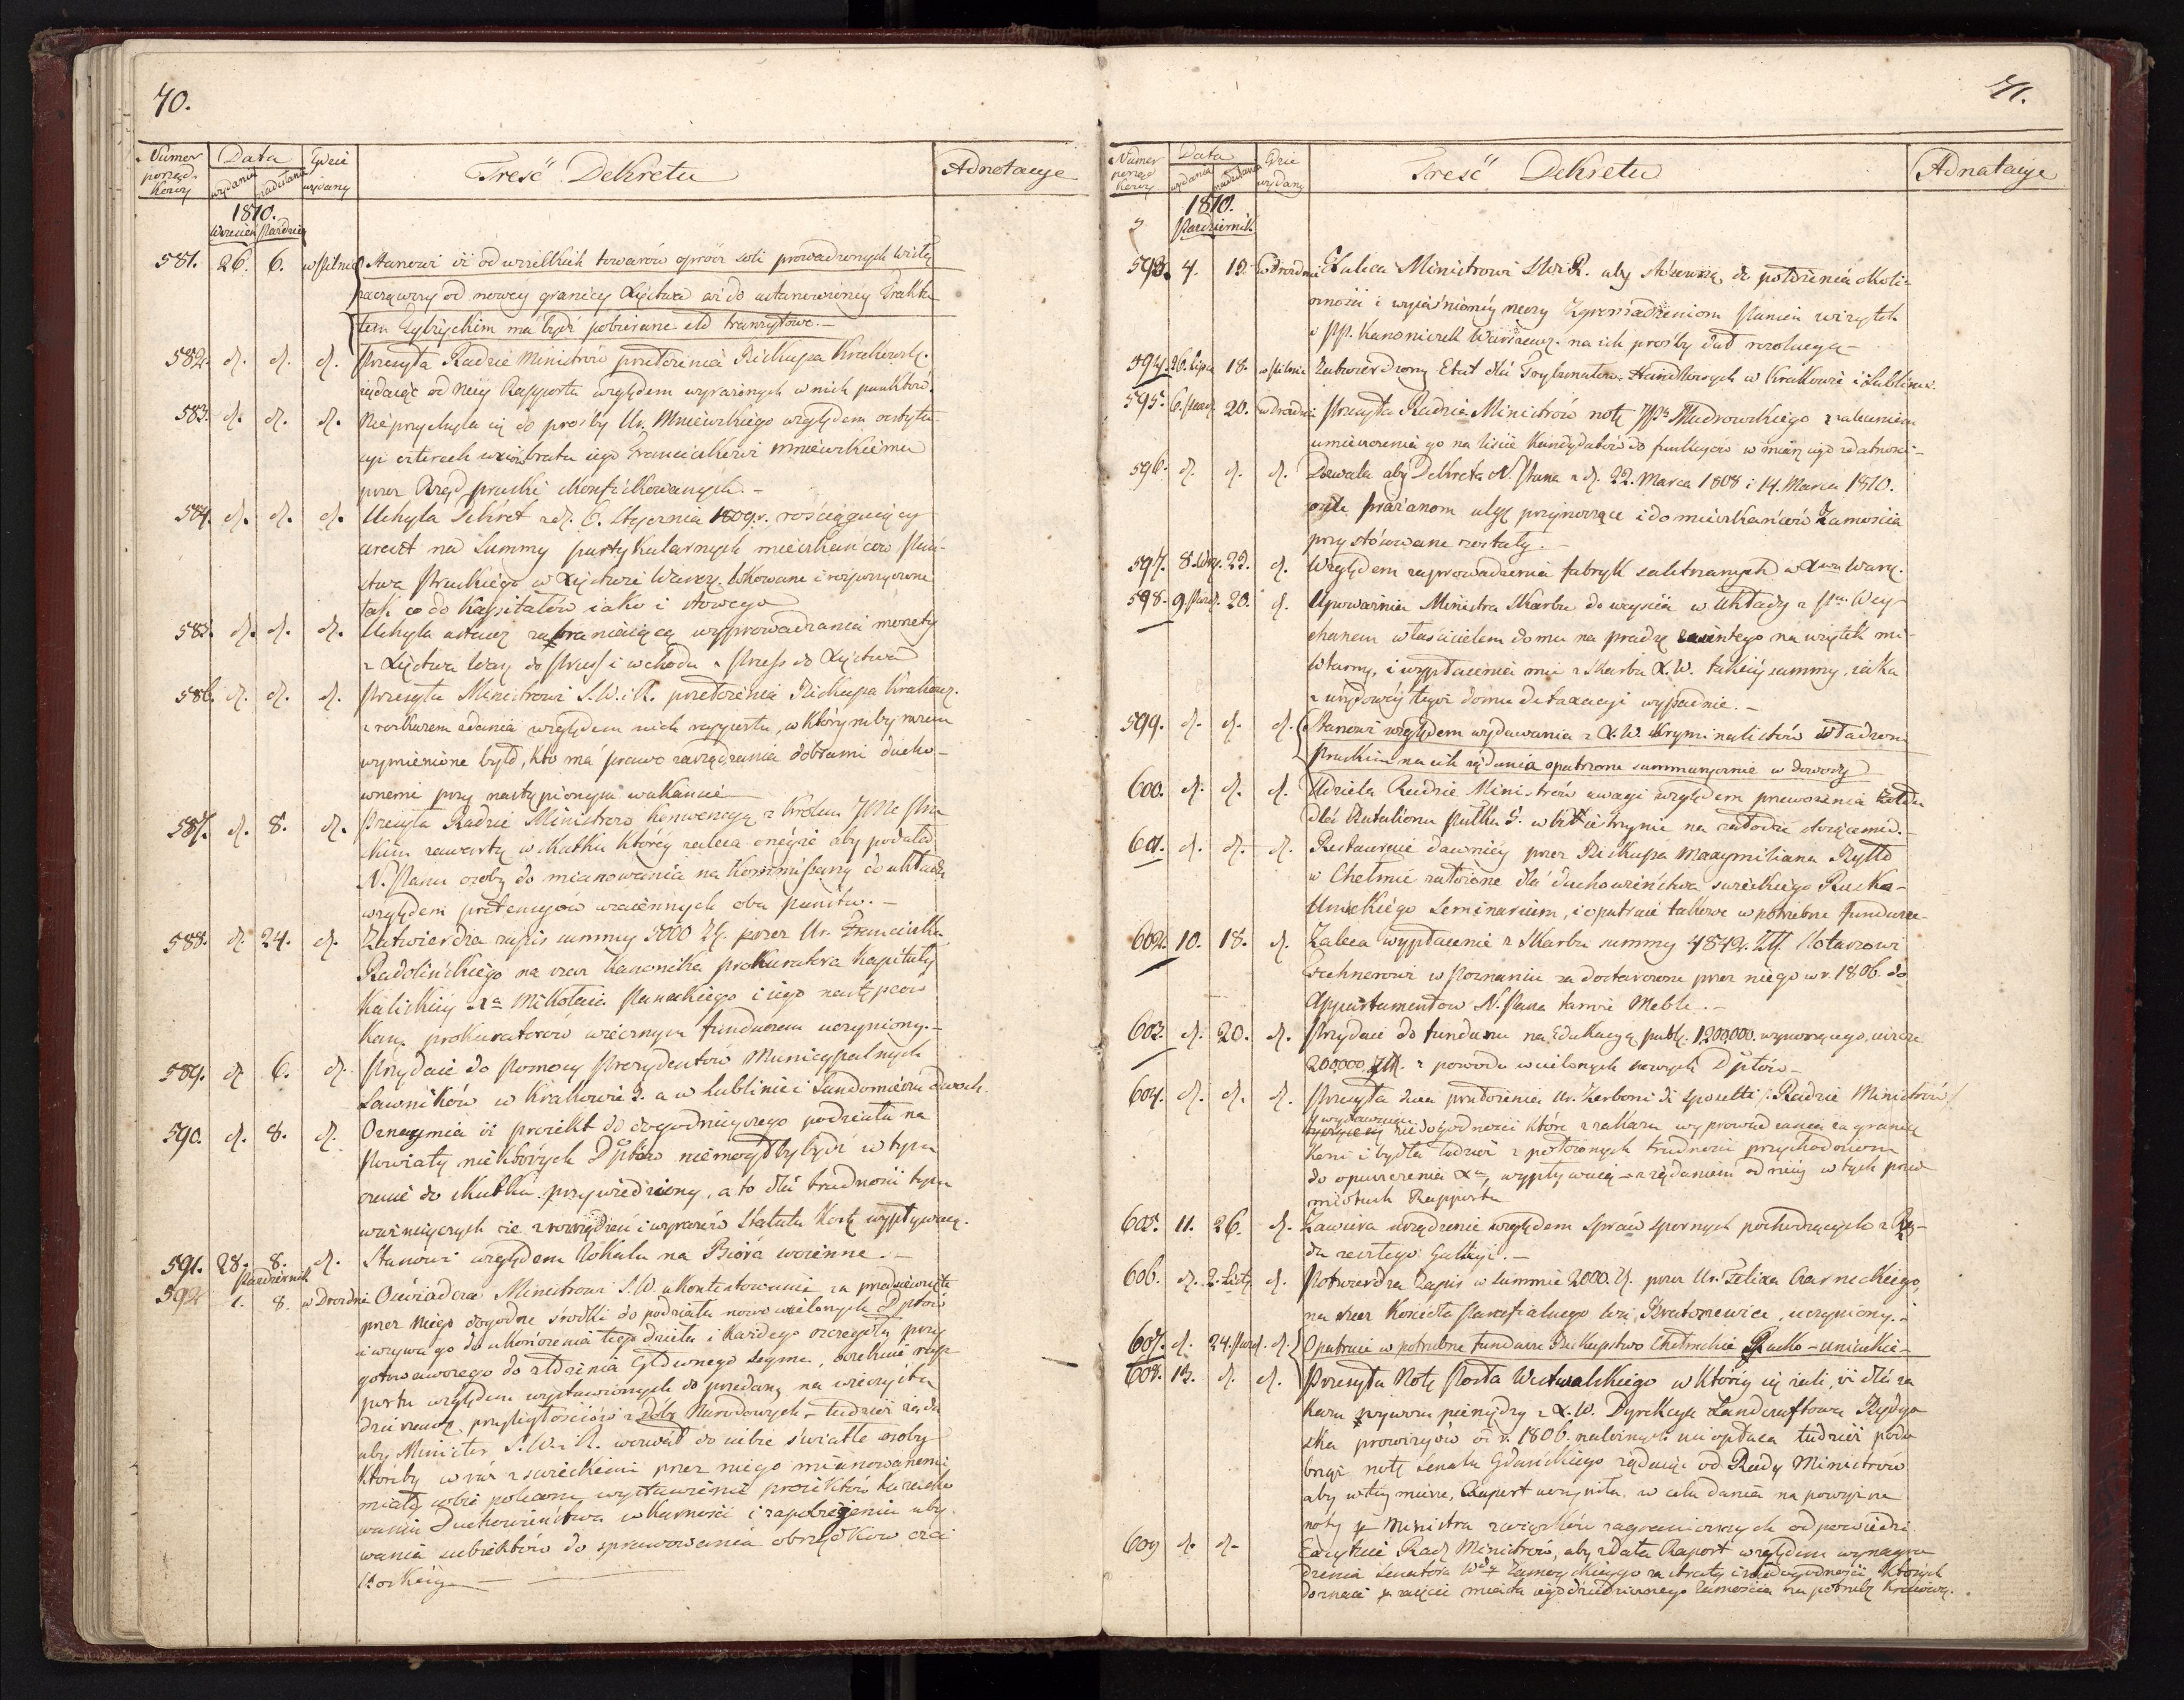 70.
Numer porząd-kowy Data wydania nadesłania Gdzie wydany Treść Dekretu Adnotacye
1810.
Wrzesień Paździer
581. 26. 6. w Pilnic Stanowi iż od wszelkich towarów oprócz soli prowadzonych Wisłą
zacząwszy od nowey granicy Xięstwa aż do ustanowioney Trakta
tem Tylżyckim ma bydź pobierane cło tranzytowe.—
582. d. d. d. Przesyła Radzie Ministrów przełożenia Biskupa Krakowsk.
żądaiąc od Neiy Rapportu względem wyrażonych w nich punktów.
583. d. d. d. Nieprzychyla się do prośby Ur. Mniewskiego względem restytu-
cyi czterech wsiów bratu iego Franciszkowi Mniewskiemu
przez Rząd pruski skonfiskowanych.—
584. d. d. d. Uchyla Dekret z d. 6. Stycznia 1809. r. rościągaiący
areszt na Summy partykularnych mieszkańców Pań-
stwa Pruskiego w Xięstwie Warsz. lokowane i rozporządzone
tak co do Kapitałów iako i
585. d. d. d. Uchyla ustawę zabraniaiącą wyprowadzania monety
z Xięstwa Warz do Pruss i wchodu z Pruss do Xięstwa
586. d. d. d. Przesyła Ministrowi S.W. i R. przełożenia Biskupa Krakowsz.
z rozkazem zdania względem nich rapportu, w którymby razem
wymienione było, kto ma prawo zarządzania dobrami ducho-
wnemi przy nastąpionym wakansie
587. d. 8. d. Przesyła Radzie Ministrów Konwencyą z Królem JMc Pru
skim zawartą w skutku którey zaleca oneyże aby podała
N. Panu osoby do mianowania na Kommissarzy do układu
względem pretensyów wzaiemnych obu Państw.—
588. d. 24. d. Zatwierdza zapis summy 5000 Zł. przez Ur. Franciszka
Radolińskiego na rzecz Kanonika prokuratora Kapituły
Kaliskiey Xa Mikołaia i iego następców
Kan. prokuratorów wiecznym funduszem uczyniony.—
589. d. 6. d. Przydaie do Pomocy Prezydentów Municypalnych
Ławników w Krakowie 3. a w Lublinie i Sandomierzu dwoch
590. d. 8. d. Oznaymia iż proiekt do dogodnieyszego podziału na
Powiaty niektórych Dptów niemógłby bydź w tym
czasie do skutku przywiedziony, a to dla trudności tym
ważnieyszych ile z rozrządzeń i wyrazów Statutu Kosty wypływaią.
591. 28. 8. d. Stanowi względem lokalu na Bióra woienne.—
Październik
592 1. 8. w Drezdnie Oświadcza Ministrowi S.W. ukontentowanie za przedsięwzięte
przez Niego dogodne środki do podziału nowo wcielonych Dptów
i wzywa go do ukończenia tego dzieła i każdego szczegóły przy
gotowawczego do złożenia Głównego Seymu,
portu względem wystawionych do przedaży na wieczystą
przyległościów z dóbr Narodowych - tudzież żąda
aby Minister S.W. i R. wezwał do siebie światłe osoby
któreby wraz z świeckiemi przez niego mianowanemi
miały sobie polecone wystawienie proiektów
Duchowieństwa w karności i zapobieżenia uży
wania subiektów do sprawowania obrządków czci
Boskiey—
71.
Numer porząd kowy Data wydania nadesłania Gdzie wydany Treść Dekretu Adnotacye
1810.
Październik
593. 4. 15. w Drezdnie Zaleca Ministrowi SWiR. aby stósowną do położenia okoli-
czności i wyiaśnioney rzeczy Zgromadzeniom Panien wizytek
i PP. Kanoniczek Warszawsz. na ich prośby dał rezolucyą—
594. 26. Lipca 18. w Pilnic Zatwierdzony Etat dla Trybunałów Handlowych w Krakowie i Lublinie.
595. 6. Paźdz. 20. w Drezdnie Przesyła Radzie Ministrów notę JPa z zaleceniem
umieszczenia go na liście Kandydatów do funkcyów w miarę iego zdatności—
596. d. d. d. Dozwala aby Dekreta N. Pana z d. 22. Marca 1808 i 14. Marca 1810.
Prażanom ulgę przynoszące i do mieszkańców Zamościa
przystósowane zostały.—
597. 8. Wrz. 23. d. Względem zaprowadzenia fabryk saletrzanych w Xwie Warsz.
598. 9. Paźd. 20. d. Upoważnia Ministra Skarbu do weyścia w układy z Pm. Wey-
chanem właścicielem domu na pradze zaiętego na użytek mi-
litarny, i wypłacenia mu z Skarbu X.W. takiey summy, iaka
z urzędowey tegoż domu detaxacyi wypadnie.—
599. d. d. d. Stanowi względem wydawania z X.W. kryminalistów władzom
Pruskim na ich żądania opatrzone summarycznie w dowody
600. d. d. d. Udziela Radzie Ministrów uwagi względem przenoszenia żołdu
dla Batalionu Pułku 5. w Kistrzynie na załodze stoiącemu.—
601. d. d. d. Restauruie dawniey przez Biskupa Maxymiliana Ryłło
w Chełmie założone dla duchowieństwa świeckiego Rusko-
Unickiego Seminarium, i opatruie takowe w potrzebne fundusze—
602. 10. 18. d. Zaleca wypłacenie z Skarbu summy 4842. Zł Stolarzowi
w Poznaniu za dostarczone przez niego w r. 1806. do
Appartamentow N. Pana tamże Meble.—
603. d. 20. d. Przydaie do funduszu na Edukacyą publ. 1,200,000. wynoszącego, ieszcze
200,000. Zł. z powodu wcielonych nowych Dptów—
604. d. d. d. Przesyła dwa przełożenia Ur. Zerboni di Sposetti /: Radzie Ministrów:/
wystawiaiące niedogodności które z zakazu wyprowadzania za granicę
Koni i bydła tudzież z położonych trudności przychodniom
do opuszczenia Xa, wypływaią z żądaniem od niey w tych prze
miotach Rapportu
605. 11. 26. d. Zawiera urządzenie względem spraw spornych pochodzących z Rzą-
du zeszłego Gallicyi.—
606. d. 2. Listp. d. Potwierdza Zapis w summie 2000. Zł. przez Ur. Felixa Czarneckiego,
na rzecz Kościoła Parafialnego wsi Bratoszewice, uczyniony.—
607. d. 24. Paźd. d. Opatruie w potrzebne fundusze Biskupstwo Chełmskie Rusko-unickie—
608. 13. d. d. Przesyła Notę Posła Westwalskiego w którey się żali, iż dla za
kazu wywozu pieniędzy z X.W. Dyrekcya Landszaftowa Bydgo
ska prowizyów od r. 1806. należnych nie opłaca tudzież podo
bnąż notę Senatu Gdańskiego żądaiąc od Rady Ministrów
aby w tey mierze, Raport uczyniła, w celu dania na powyższe
noty Ministra związków zagranicznych odpowiedzi
609 d. d. Radę Ministrów, aby zdała Raport względem wynagro
dzenia Senatora Wdy Zamoyskiego za straty i niedogodności których
doznaie zaięcie miasta iego dziedzicznego Zamościa na potrzebę Kraiową.